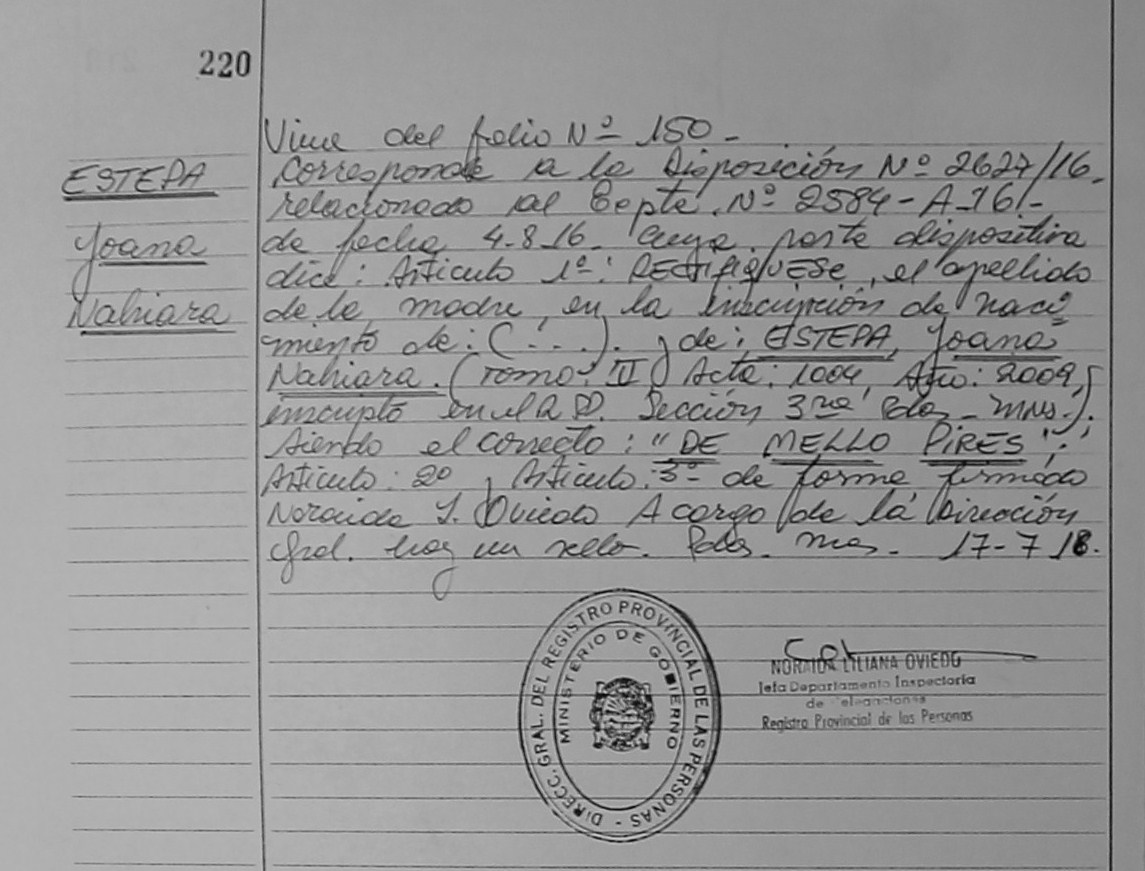 220
ESTEPA
Joana
Nahiara
Viene del folio Nº 150.-
Corresponde a la Disposición Nº 2627/16.
relacionado al Expte. Nº 2584-A-16/-
de fecha 4-8-16. Cuya parte dispositiva
dice: Artículo 1º: RECTIFIQUESE, el apellido
de la madre, en la inscripción de naci=
miento de: (...). y de: ESTEPA, Joana
Nahiara. (Tomo: II Acta: 1004, Año: 2009,
inscripto en el R.P. Sección 3ra Pdas - Mns.).
Siendo el correcto: "DE MELLO PIRES".
Artículo: 2º y Artículo: 3º de forma firmado
Noraida L. Oviedo A cargo de la Dirección
Gral. hay un sello. Pdas. Mns. 17-7-18.
DIRECC. GRAL. DEL REGISTRO PROVINCIAL DE LAS PERSONAS -
MINISTERIO DE GOBIERNO
NORAIDA LILIANA OVIEDO
Jefa Departamento Inspectoría
de Delegaciones
Registro Provincial de las Personas